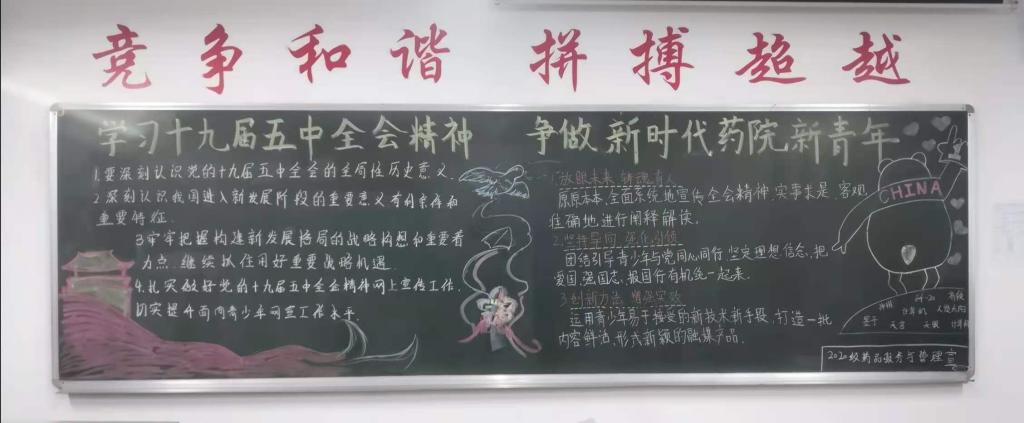 竞争和谐 拼搏超越
学习十九届五中全会精神
1.要深刻认识党的十九届五中全会的全局性历史意义.
2.深刻认识我国进入新发展阶段的重要意义有利条件和
重要特征.
3牢牢把握构建新发展格局的战略构想和重要着
力点.继续抓住用好重要战略机遇.
4.扎实做好党的十九届五中全会精神网上宣传工作.
切实提升面向青少年网宣工作水平.
争做新时代药院新青年
1.放眼未来
原原本本,全面系统地宣传全会精神,实事求是,客观
准确地进行阐释解读.
2.坚持导向 强化引领
团结引导青少年与党同心同行,坚定理想信念,把
爱国、强国志、报国行有机统一起来.
3.创新方法 增强实效
运用青少年易于接受的新技术新手段,打造一批
内容鲜活,形式新颖的融媒产品.
CHINA
2020级药品服务与管理宣